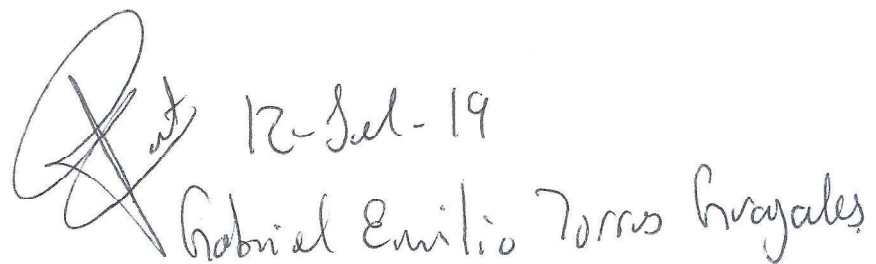 12-Jul-19
Gabriel Emilio Torres Grajales